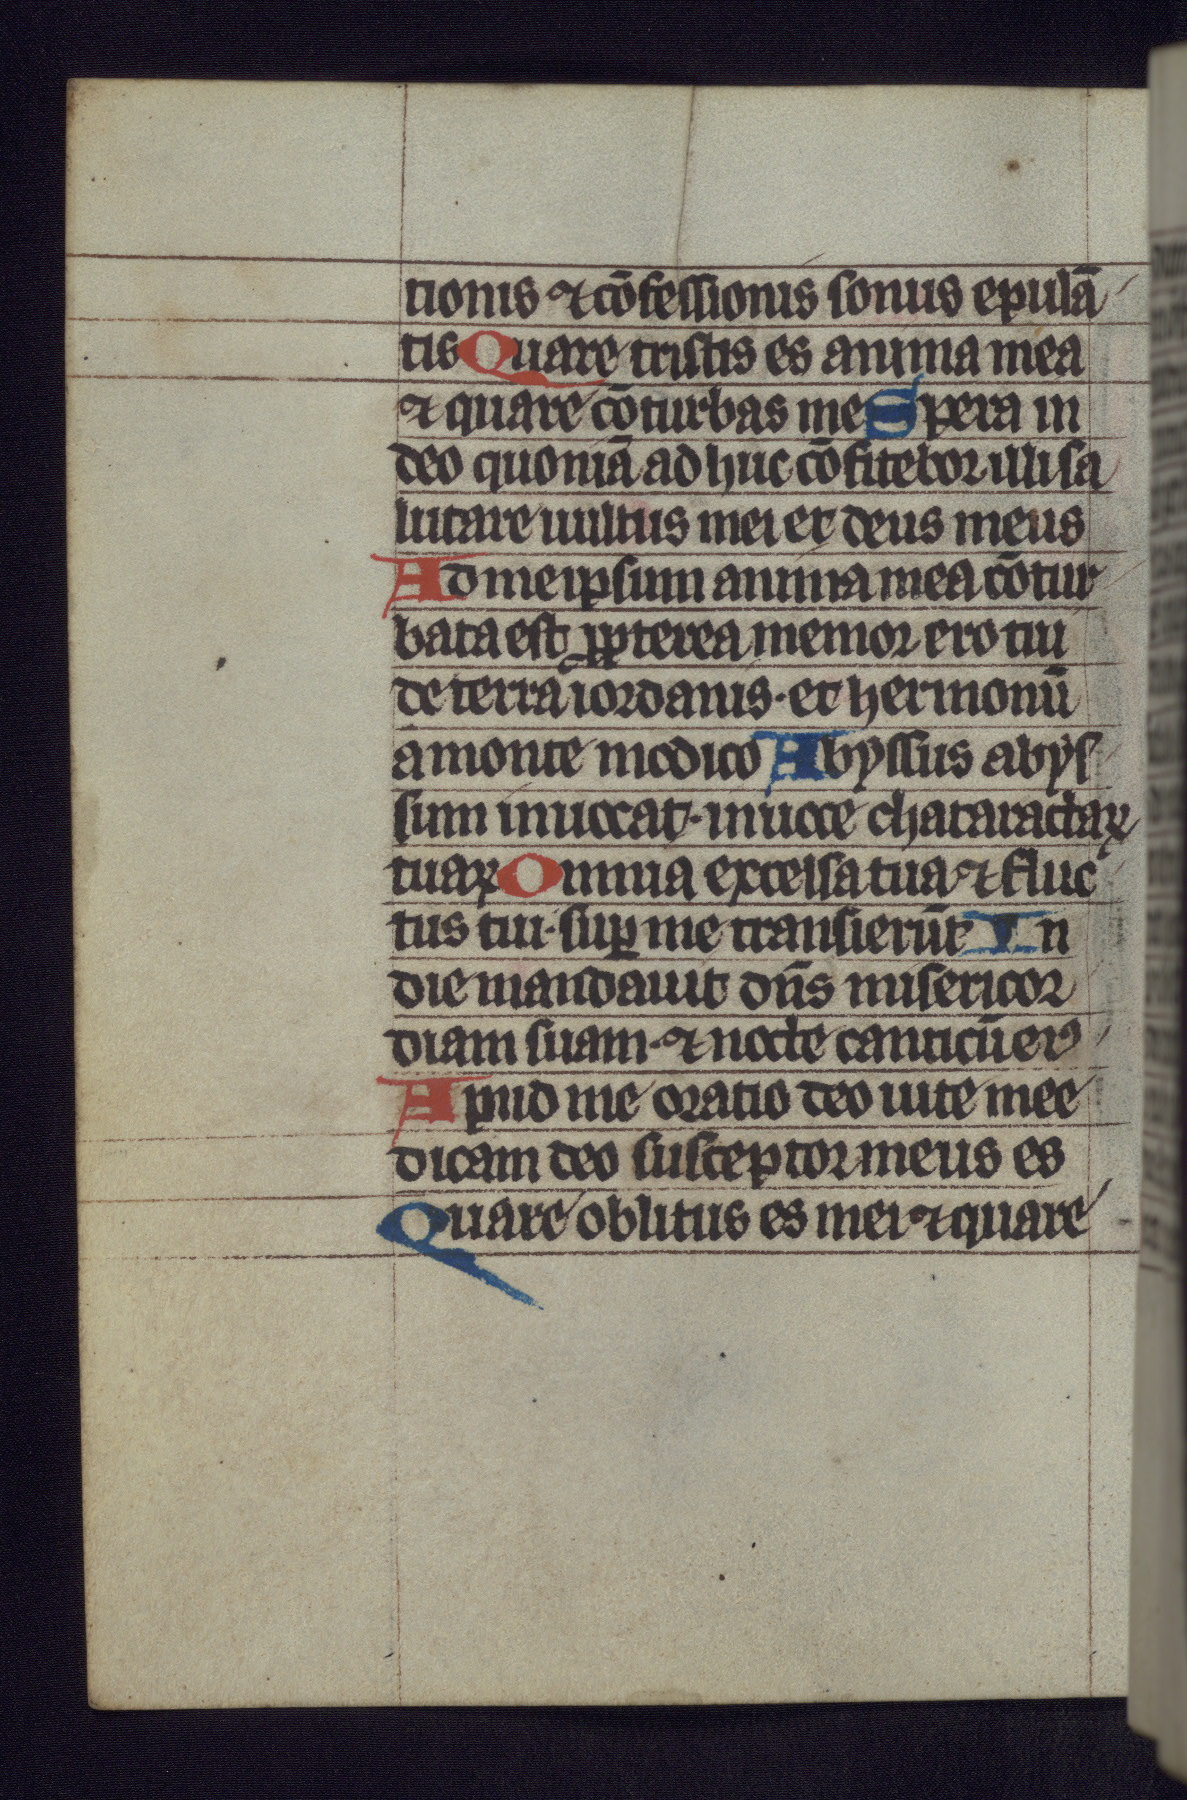 tionis ⁊ cōfessionis sonus epulā
tis Quare tristis es anima mea
⁊ quare cōturbas me Spera in
deo quoniā ad huc cōfitebor illi sa
lutare uultus mei et deus meus
Ad me ipsum anima mea cōtur
bata est ꝓpterea memor ero tui
de terra iordanis · et hermonū
a monte modico Abyssus abys
sum inuocat · in uoce chataractaꝝ
tuaꝝ Omnia excelsa tua ⁊ fluc
tus tui · suꝑ me transierūt In
die mandauit dn̄s misericor
diam suam · ⁊ nocte canticū eiꝰ
Apud me oratio deo uite mee
dicam deo susceptor meus es
Quare oblitus es mei ⁊ quare